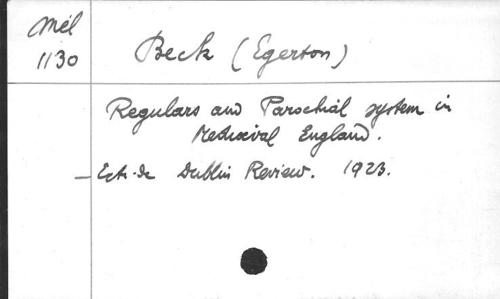 Mél
1130
Beck (Egerton)
Regulars and Parochial system in
Mediæval England.
— Extr. de Dublin Review. 1923.